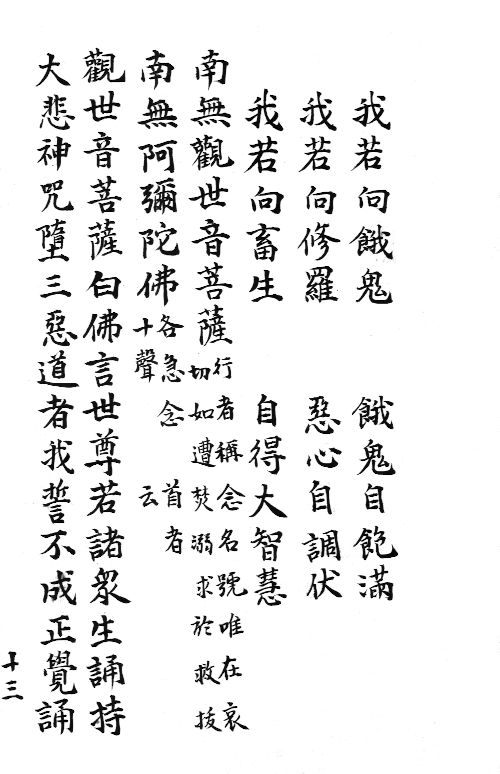 我若向餓鬼　餓鬼自飽滿
我若向修羅　惡心自調伏
我若向畜生　自得大智慧
南無觀世音菩薩行者稱念名號唯在哀
切如遭焚溺求於救拔
南無阿彌陀佛各急念　首者
十聲　云
觀世音菩薩白佛言世尊若諸眾生誦持
大悲神咒墮三惡道者我誓不成正覺誦
十三